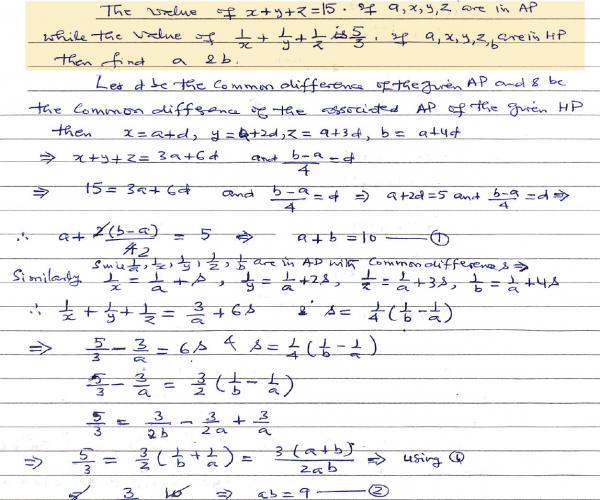 The value of x+y+z=15. If a,x,y,z are in AP
while the value of 1/x + 1/y + 1/z is 5/3. if a,x,y,z,b are in HP
then find a & b.
Let d be the common difference of the given AP and s be
the common difference of the associated AP of the given HP
then x=a+d, y=a+2d, z=a+3d, b=a+4d
⇒ x+y+z=3a+6d and (b-a)/4=d
⇒ 15=3a+6d and (b-a)/4=d ⇒ a+2d=5 and (b-a)/4=d ⇒
∴ a+2(b-a)/42 = 5 ⇒ a+b=10 —— ①
Since 1/a, 1/x, 1/y, 1/z, 1/b are in AP with common difference s ⇒
Similarly 1/x = 1/a + s, 1/y = 1/a + 2s, 1/z = 1/a + 3s, 1/b = 1/a + 4s
∴ 1/x + 1/y + 1/z = 3/a + 6s & s = 1/4 (1/b - 1/a)
⇒ 5/3 - 3/a = 6s & s = 1/4 (1/b - 1/a)
5/3 - 3/a = 3/2 (1/b - 1/a)
5/3 = 3/2b - 3/2a + 3/a
⇒ 5/3 = 3/2 (1/b + 1/a) = 3(a+b)/2ab ⇒ using ①
5 3 10 ⇒ ab=9 —— ②